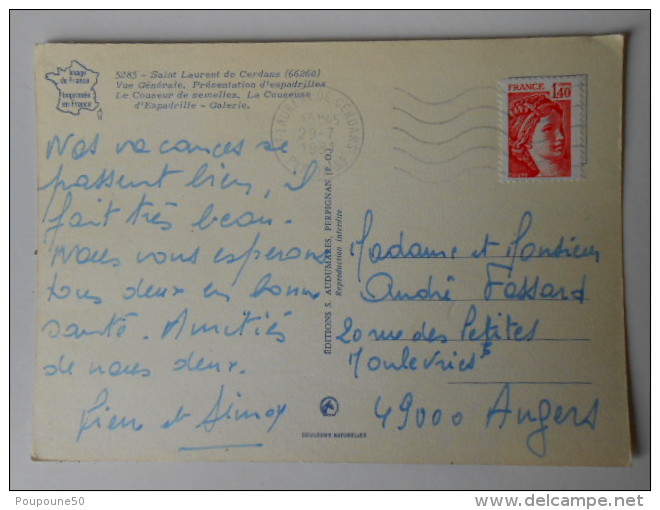 Image
de France
Imprimée
en France
5285 - Saint Laurent de Cerdans (66260)
Vue Générale. Présentation d'espadrilles
Le Couseur de semelles. La Couseuse
d'Espadrille - Galerie.
FRANCE
1,40
LAURENT DE CERDANS
29-7
Nos vacances se
passent bien, il
fait très beau.
Nous vous esperons
tous deux en bonne
santé. Amitiés
de nous deux.
Pierre et
EDITIONS S. AUDUMARES, PERPIGNAN (P.-O.)
Reproduction interdite
Madame et Monsieur
André Fossard
20 rue des Petites
Moulevries
49000 Angers
COULEURS NATURELLES
Poupoune50
delcampe.net